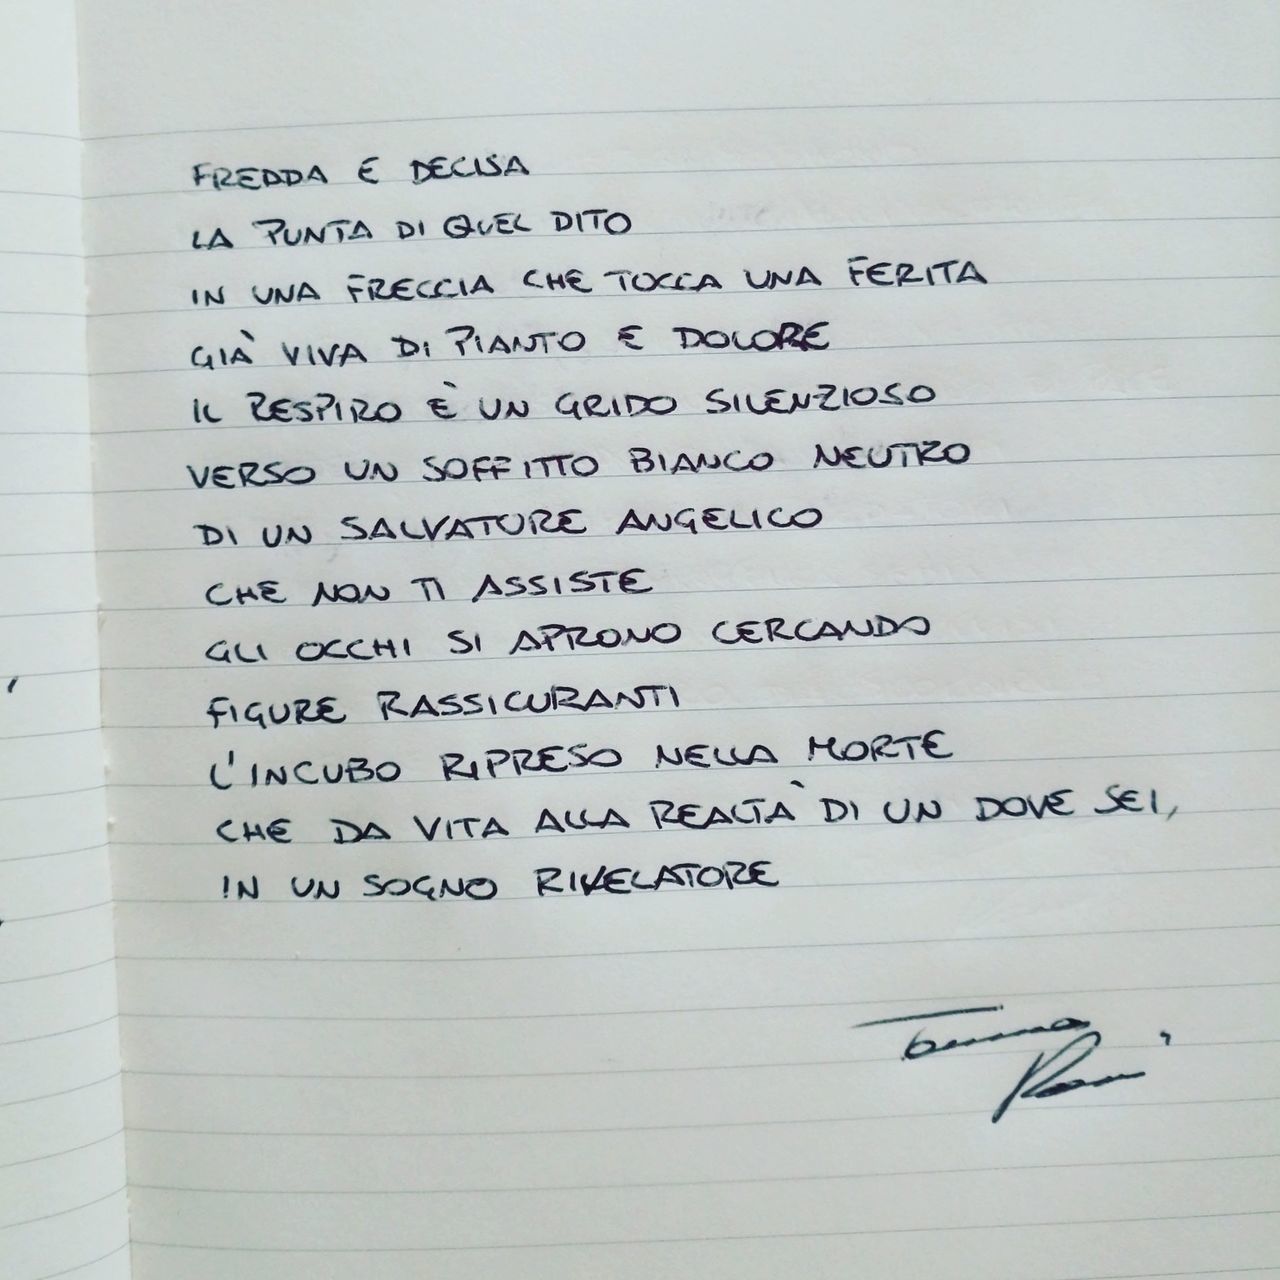 FREDDA E DECISA
LA PUNTA DI QUEL DITO
IN UNA FRECCIA CHE TOCCA UNA FERITA
GIÀ VIVA DI PIANTO E DOLORE
IL RESPIRO È UN GRIDO SILENZIOSO
VERSO UN SOFFITTO BIANCO NEUTRO
DI UN SALVATORE ANGELICO
CHE NON TI ASSISTE
GLI OCCHI SI APRONO CERCANDO
FIGURE RASSICURANTI
L'INCUBO RIPRESO NELLA MORTE
CHE DA VITA ALLA REALTÀ DI UN DOVE SEI,
IN UN SOGNO RIVELATORE